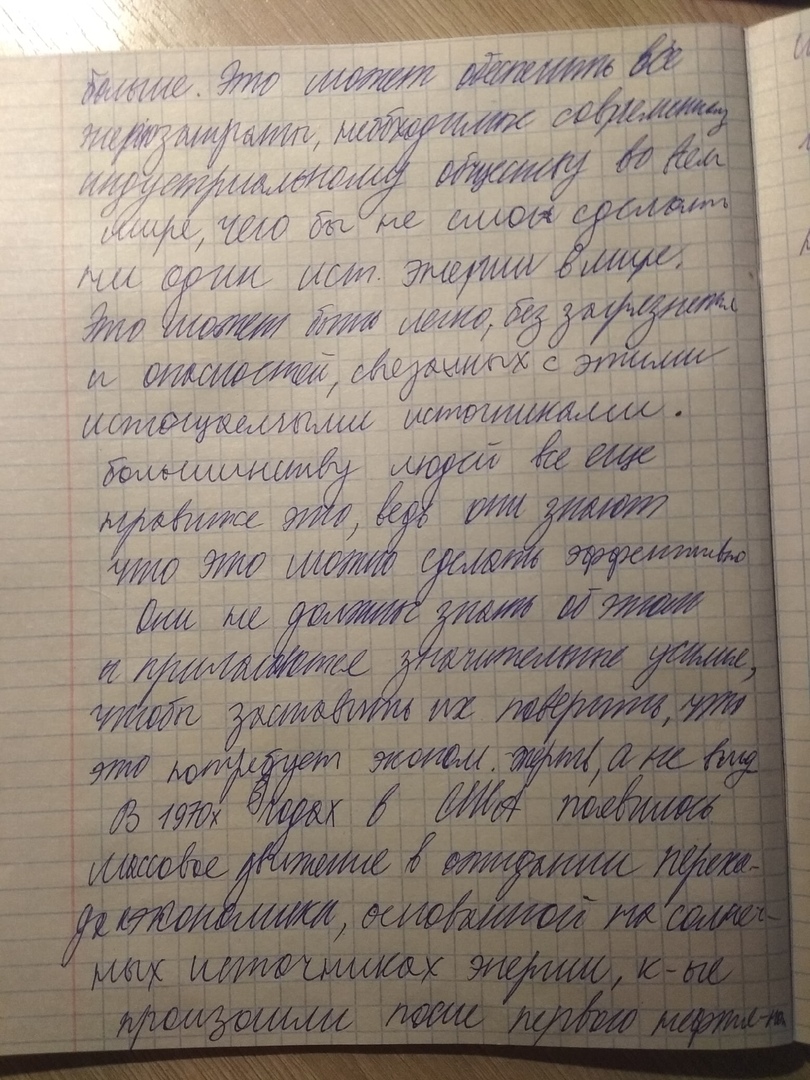 больше. Это может обеспечить все
энергозатраты, необходимые современному
индустриальному обществу во всем
мире, чего бы не смог сделать
ни один ист. энергии в мире.
Это может быть легко, без загрязнения
и опасностей, связанных с этими
истощаемыми источниками.
большинству людей все еще
это, ведь они знают
что это можно сделать эффективно
Они не должны знать об этом
и прилагаются значительные усилия,
чтобы заставить их поверить, что
это потребует эконом. жертв, а не выгод
В 1970х годах в США появилось
массовое движение в ожидании перехо-
да экономики, основанной на солнеч-
ных источниках энергии, к-ые
произошли после первого нефтя-но